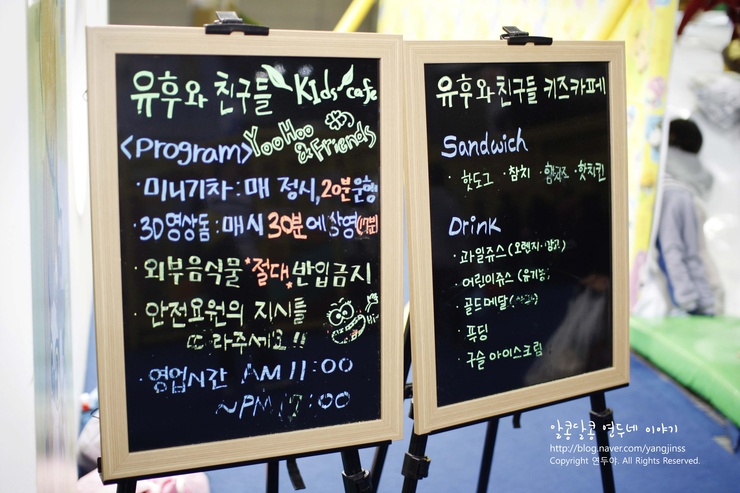 유후와 친구들 Kids cafe
<Program> YooHoo & Friends
· 미니기차 : 매 정시, 20분 운행
· 3D영상돔 : 매시 30분에 상영(17분)
· 외부음식물 *절대* 반입금지
· 안전요원의 지시를
따라주세요!!
Hi~
· 영업시간 AM 11:00
~PM 17:00
유후와 친구들 키즈카페
Sandwich
· 핫도그 · 참치 · 햄치즈 · 핫치킨
Drink
· 과일쥬스 (오렌지·감귤)
· 어린이쥬스 (유기농)
· 골드메달
· 푸딩
· 구슬 아이스크림
알콩달콩 연두네 이야기
http://blog.naver.com/yangjinss
Copyright 연두야. All Rights Reserved.